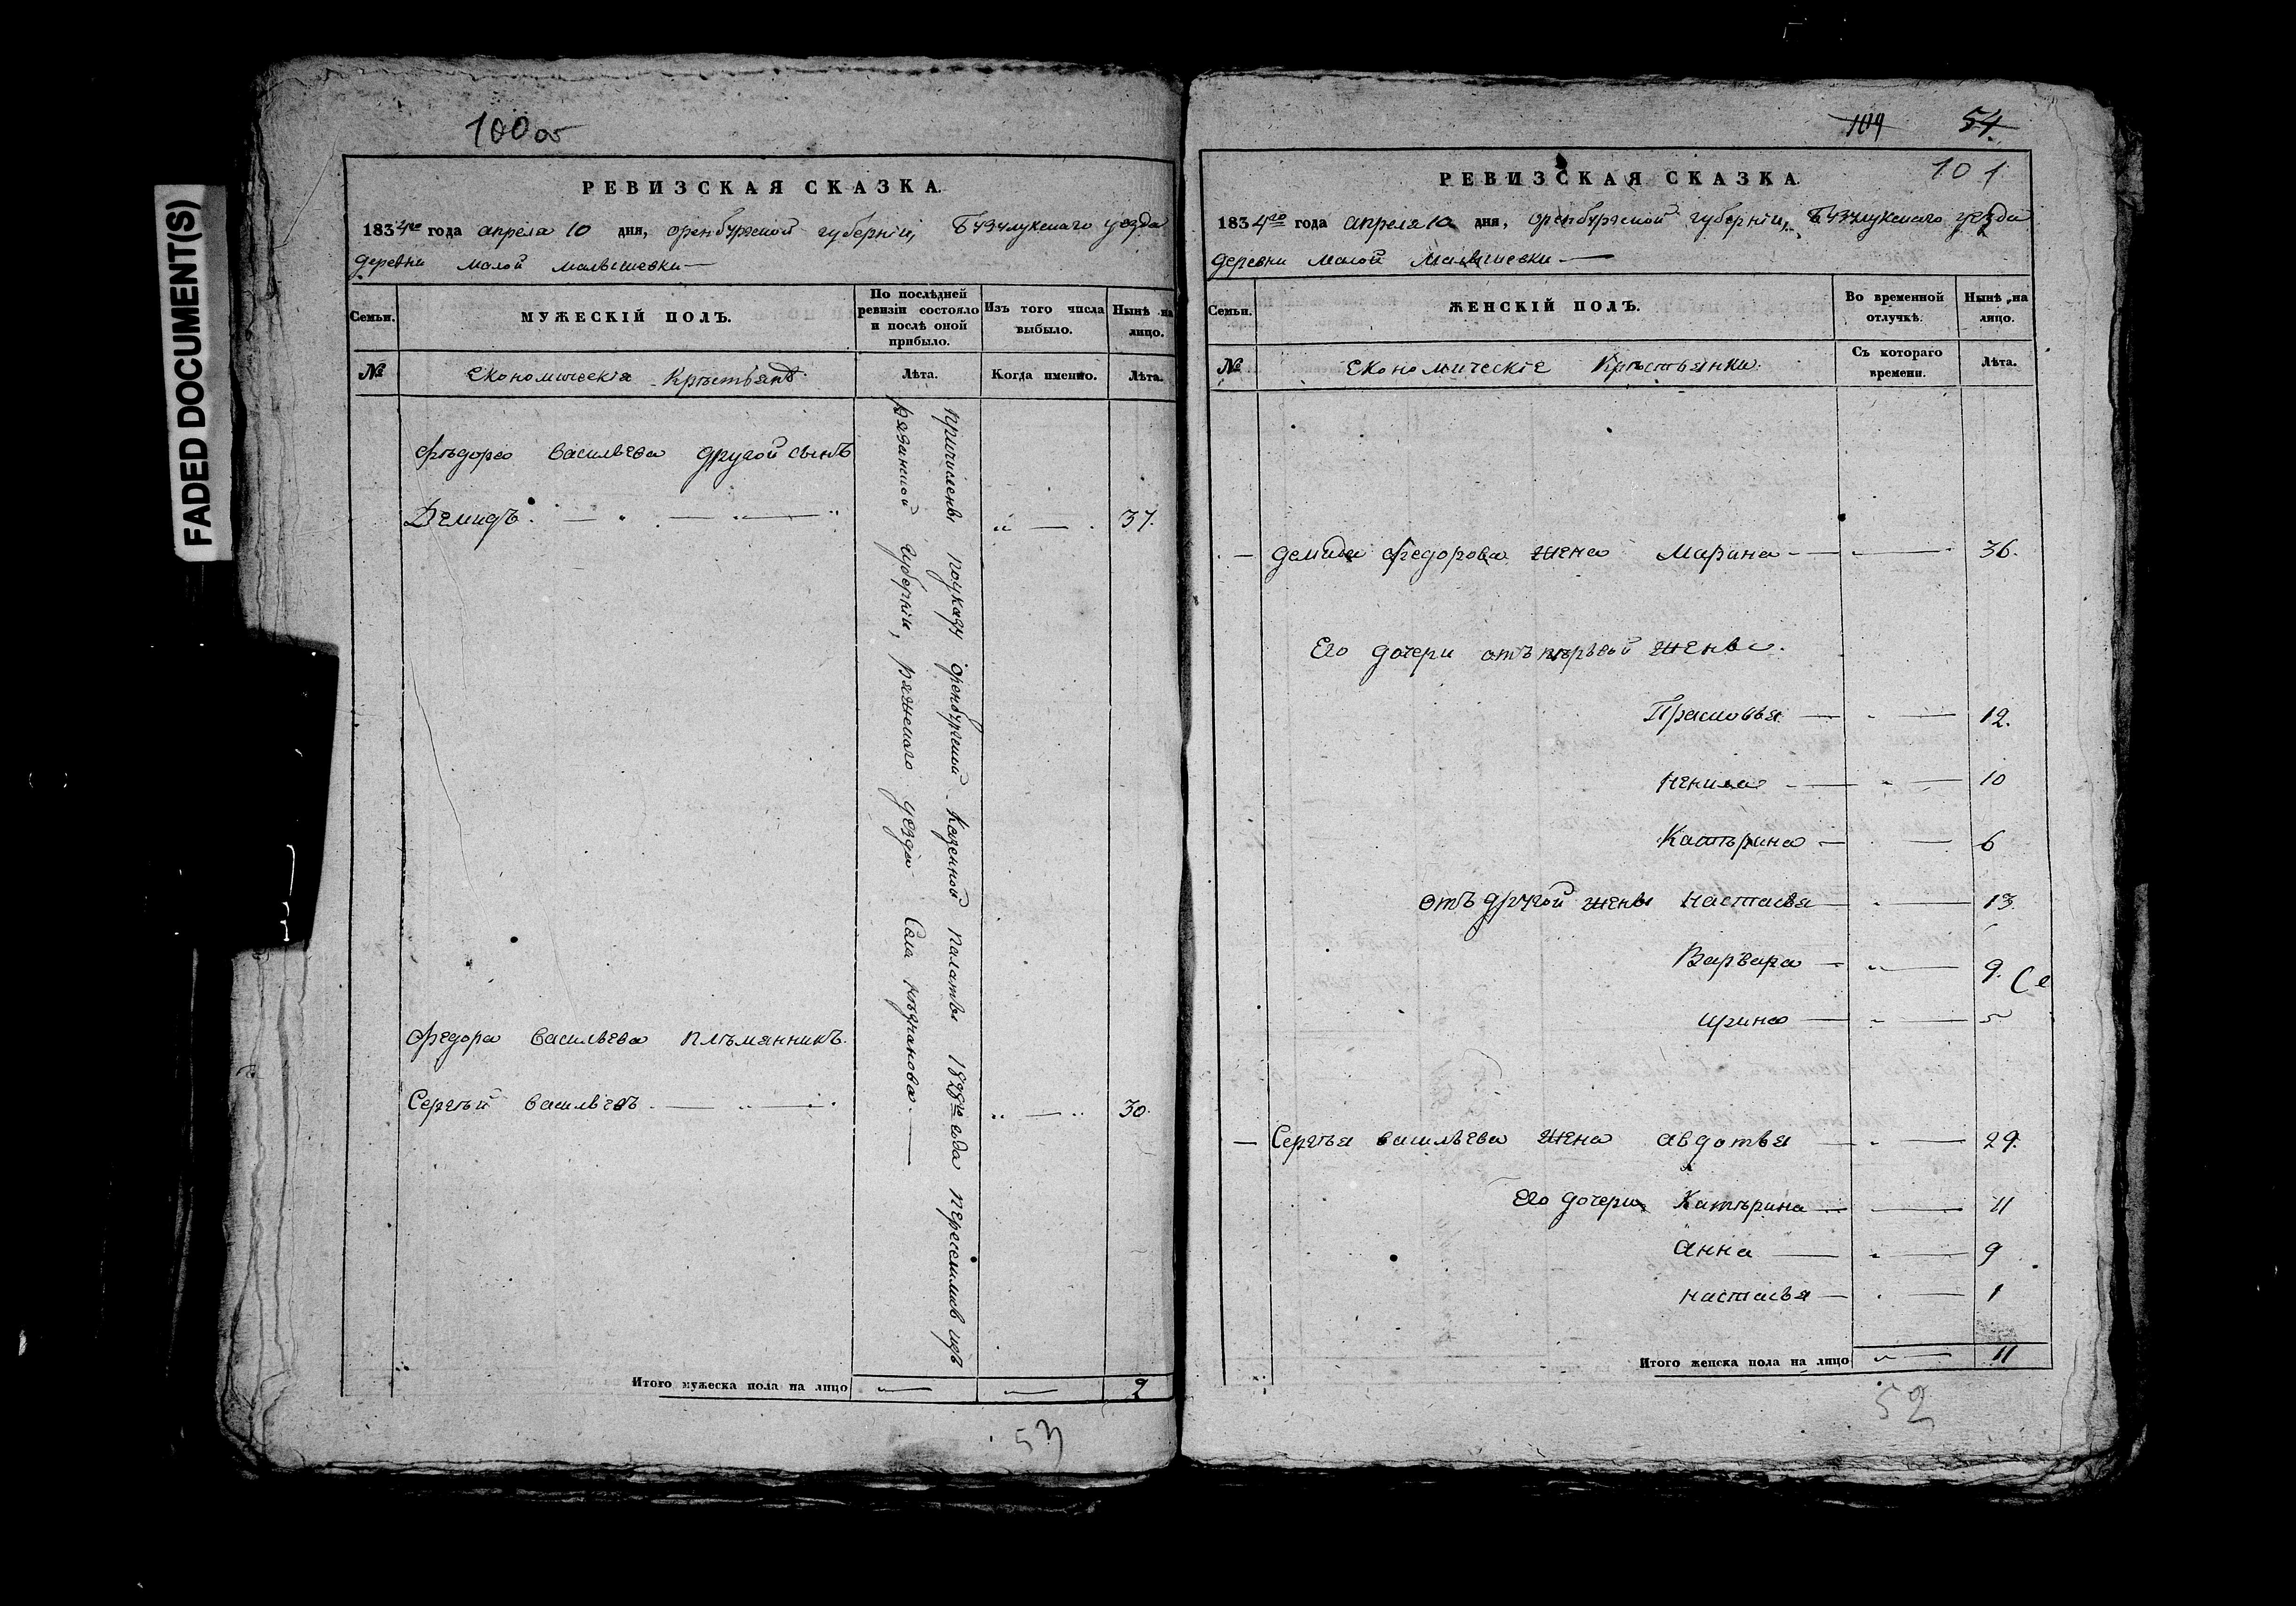 FADED DOCUMENT(S)
100 об
РЕВИЗСКАЯ СКАЗКА.
1834го года апреля 10 дня, оренбургской губернiи, Бузулукскаго уезда
деревни малой малышевки —
Семьи.
МУЖЕСКIЙ ПОЛЪ.
По послѣдней ревизiи состояло и послѣ оной прибыло.
Изъ того числа выбыло.
Нынѣ на лицо.
№
Економическiя Крѣстьянѣ
Лѣта.
Когда именно.
Лѣта.
Фѣдоро васильева другой сынъ
Демидъ. — „ — „ — „ „ — . 37.
причислены поуказу оренбургской Казенной палаты 1828го года переселились изъ
рязанской губернiи, ряжскаго уезда Села
Федора васильева плѣмянникъ.
Сергѣй васильевъ. — „ — . „ — „ 30.
Итого мужеска пола на лицо — — 2
53
109 54.
101
РЕВИЗСКАЯ СКАЗКА.
1834го года апреля 10 дня, оренбургской губернiи, Бузулукскаго уезда
деревни малой малышевки —
Семьи.
ЖЕНСКIЙ ПОЛЪ.
Во временной отлучкѣ.
Нынѣ на лицо.
№
Економическiе Крѣстьянки.
Съ котораго времени.
Лѣта.
— демида федорова жена Марина — „ — 36.
Его дочери отъ пѣрвой жены.
Прасковья — „ — 12.
ненила — „ — 10
Катѣрина — „ — 6
отъ другой жены настасья — „ — 13.
Варвара — „ — 9.
ирина — „ — 5
— Сергѣя васильева жена авдотья — „ — 29.
Его дочери Катѣрина — „ — 11
анна — „ — 9
настасья — „ — 1
Итого женска пола на лицо „ — 11
52